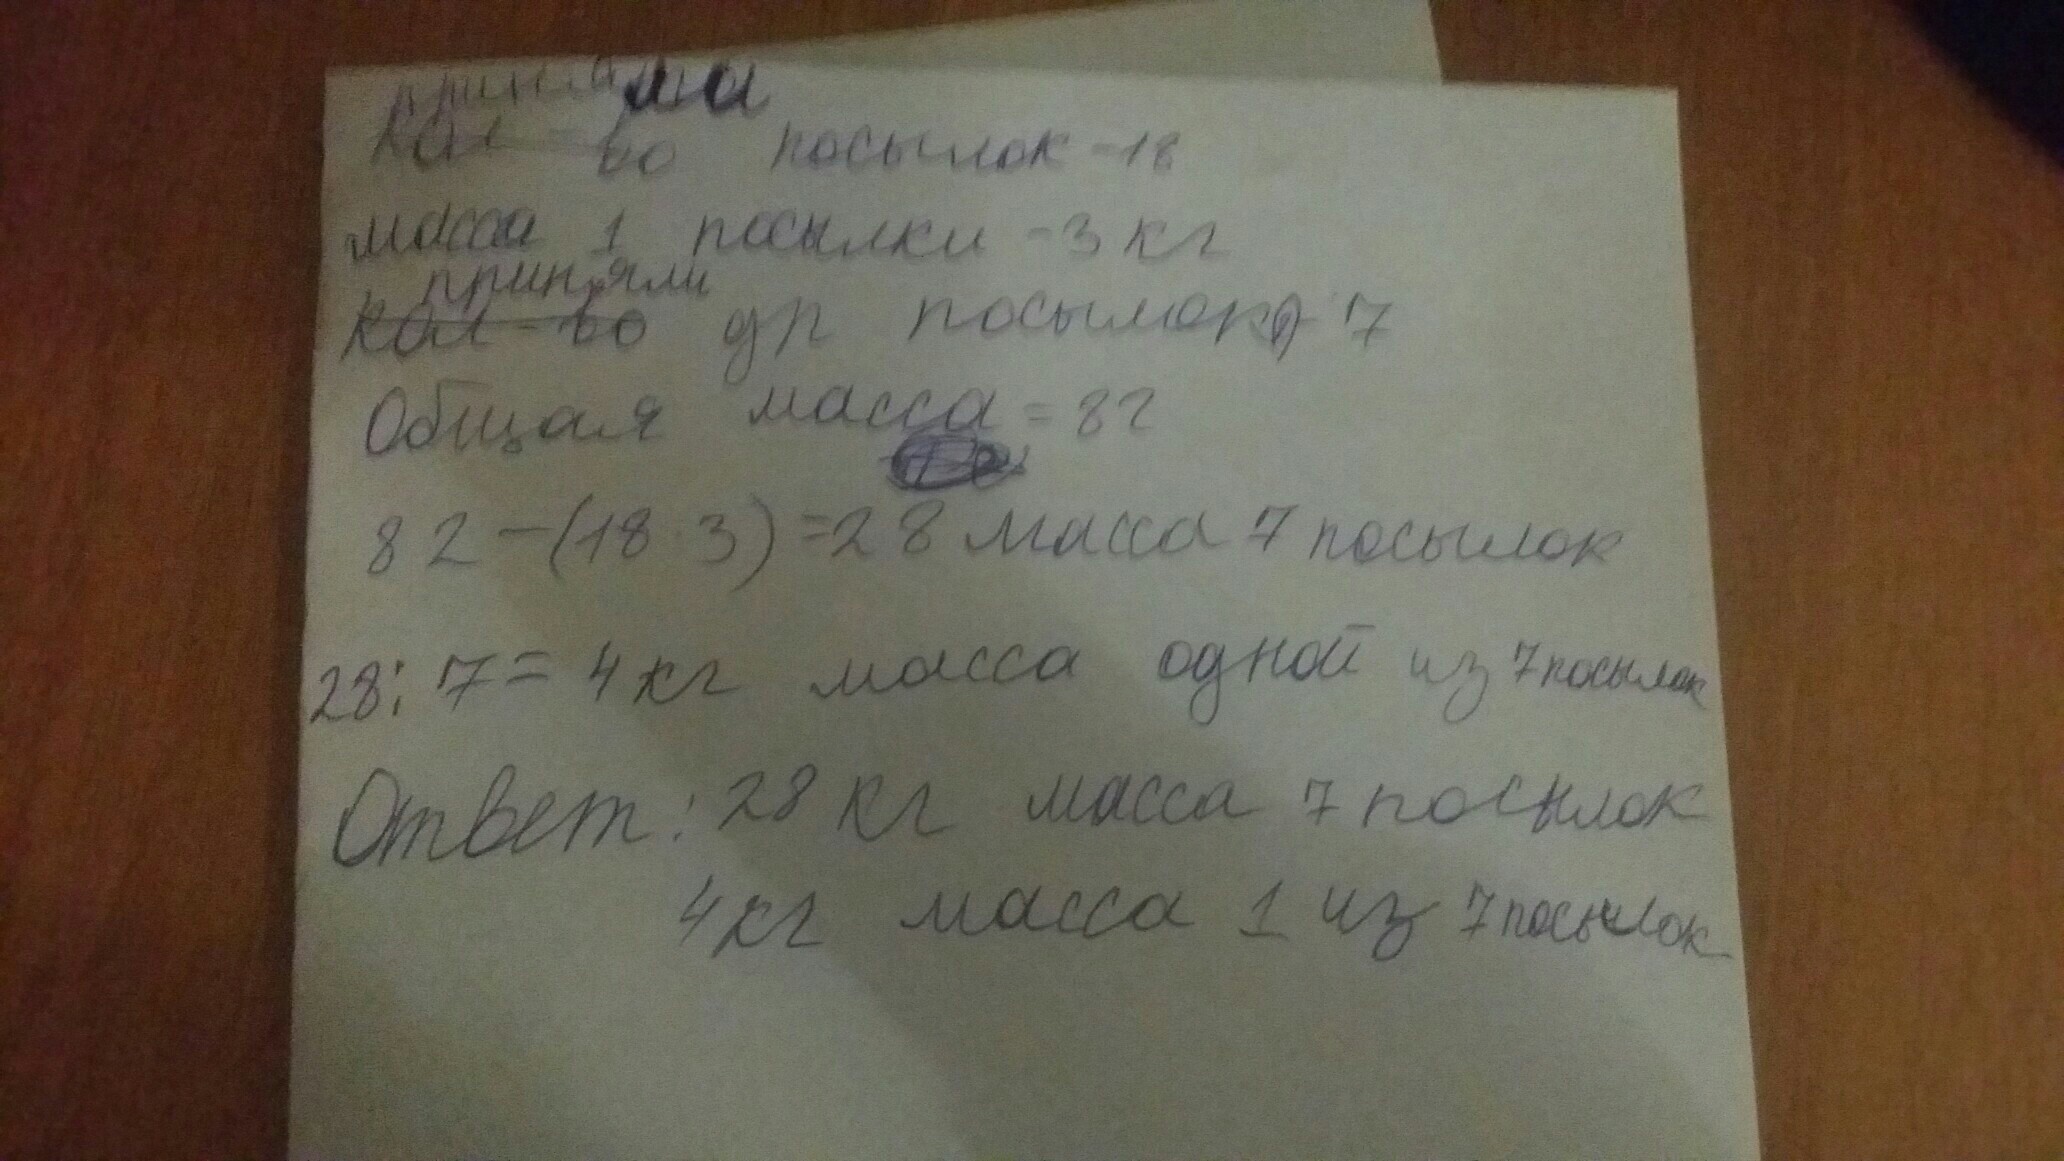 приняла
кол-во посылок - 18
масса 1 посылки - 3 кг
приняли
кол-во др посылок - 7
Общая масса = 82
82 - (18 · 3) = 28 масса 7 посылок
28 : 7 = 4 кг масса одной из 7 посылок
Ответ: 28 кг масса 7 посылок
4 кг масса 1 из 7 посылок